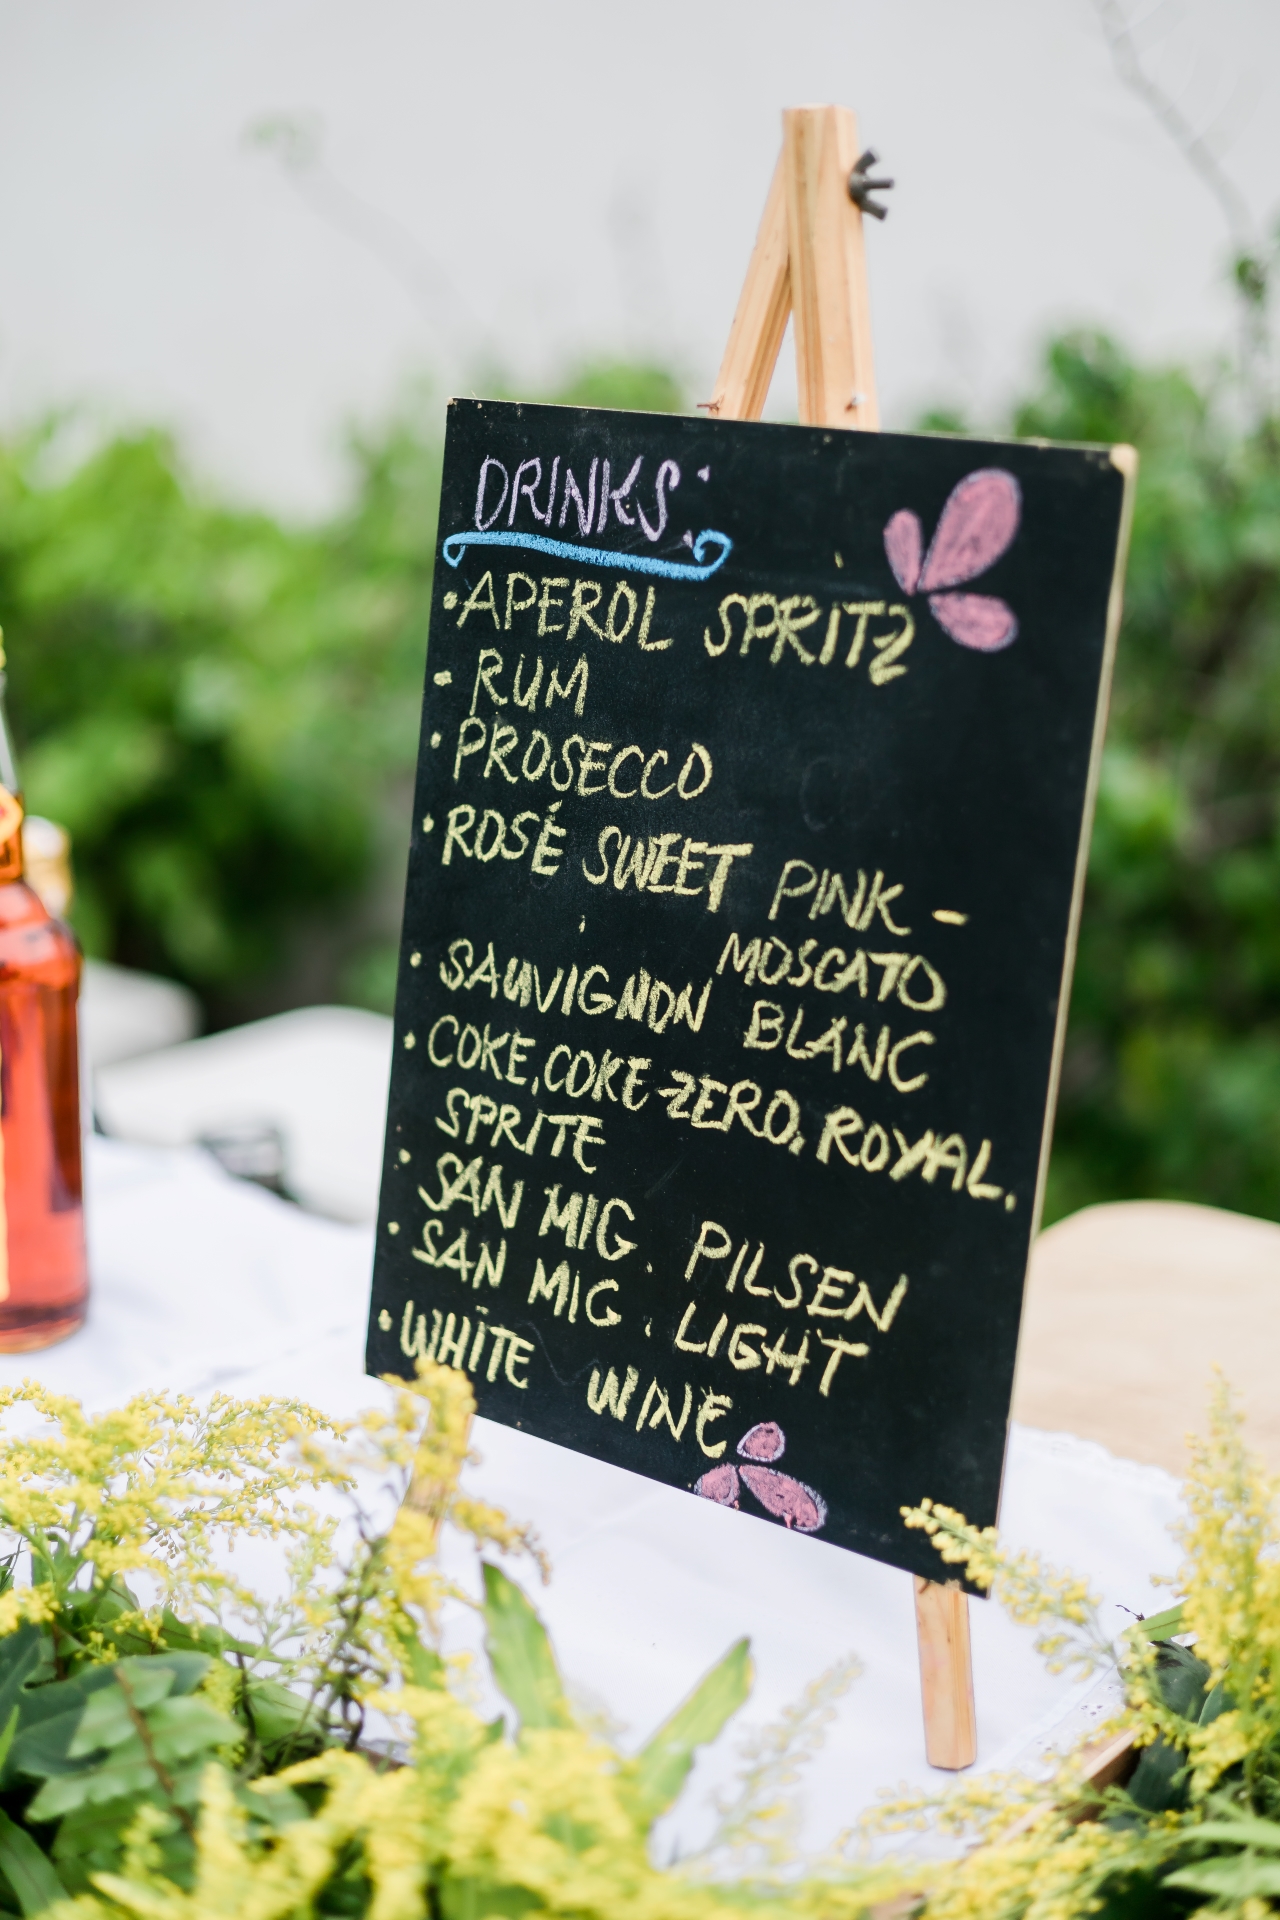 DRINKS:
• APEROL SPRITZ
• RUM
• PROSECCO
• ROSÉ SWEET PINK -
MOSCATO
• SAUVIGNON BLANC
• COKE, COKE ZERO, ROYAL,
SPRITE
• SAN MIG. PILSEN
• SAN MIG. LIGHT
• WHITE WINE